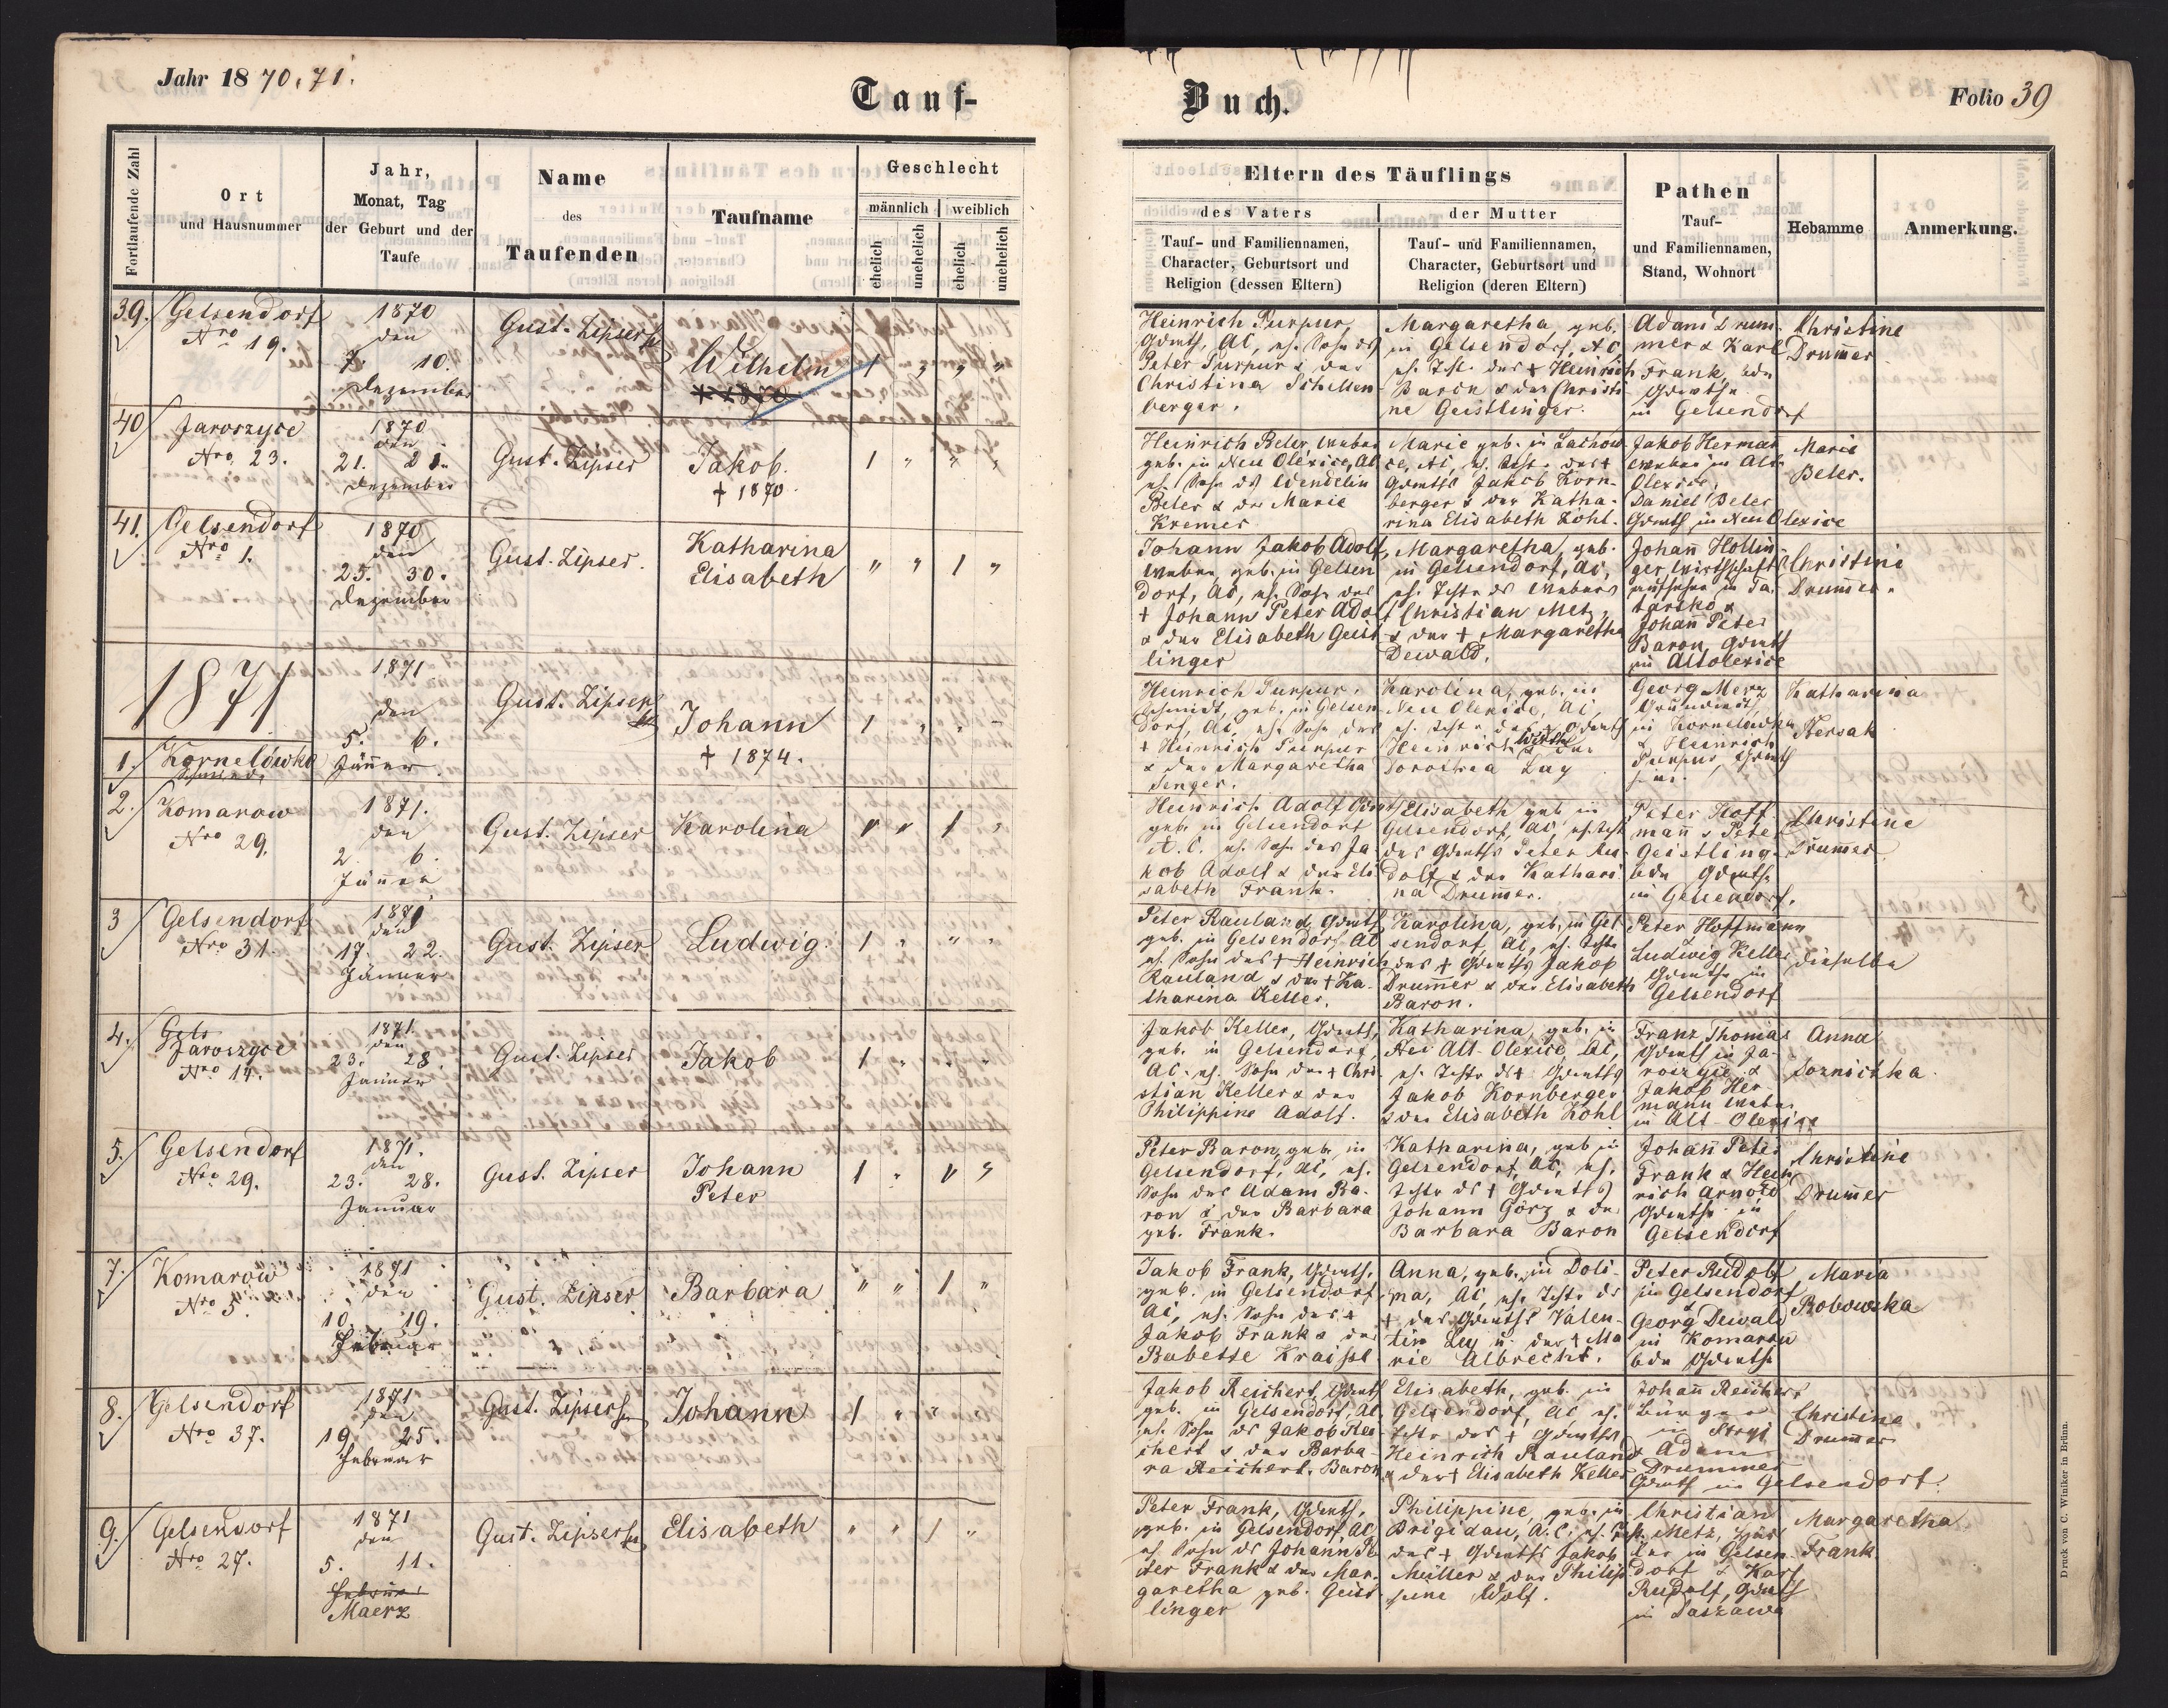 Jahr 1870.71.
Tauf-
Buch.
Folio 39
Fortlaufende Zahl
Ort
und Hausnummer
Jahr,
Monat, Tag
der Geburt und der
Taufe
Name
des
Taufenden
Taufname
Geschlecht
männlich
weiblich
ehelich
unehelich
ehelich
unehelich
Eltern des Täuflings
des Vaters
Tauf- und Familiennamen,
Character, Geburtsort und
Religion (dessen Eltern)
der Mutter
Tauf- und Familiennamen,
Character, Geburtsort und
Religion (deren Eltern)
Pathen
Tauf-
und Familiennamen,
Stand, Wohnort
Hebamme
Anmerkung.
39. Gelsendorf
Nro 19.
1870
den
7. 10.
Dezember
Gust. Zipser
Wilhelm
1 " " "
Heinrich Purpur,
Peter Purpur & der
Christina Schellen-
berger.
Margaretha, geb.
in Gelsendorf, AC,
eh. Toch. des + Heinrich
Baron & der Christi-
ne Geistlinger.
Adam Drum-
mer & Karl
Frank, bde
Grdwths
in Gelsendorf
Christine
Drum̄er
40 Jaroszyce
Nro 23.
1870
den
21. 21.
Dezember
Gust. Zipser
Jakob.
+ 1870
1 " " "
Heinrich Beler, Weber
geb. in Neu Olexice, AC
eh. Sohn ds Wendelin
Beler & der Marie
Kremer
Marie geb. in Lachow-
ce, AC, eh. Tocht. des +
Grdwths Jakob Korn-
berger & der Katha-
rina Elisabeth Kohl.
Jakob Herman
Weber in Alt-
Olexice,
Daniel Beler
Grdwth in Neu Olexice
Marie
Beler.
41. Gelsendorf
Nro 1.
1870
den
25. 30.
Dezember
Gust. Zipser.
Katharina
Elisabeth
" " 1 "
Johann Jakob Adolf,
Weber, geb. in Gelsen
dorf, AC, eh. Sohn des
+ Johann Peter Adolf
& der Elisabeth Geist
linger
Margaretha, geb.
in Gelsendorf, AC,
eh. Tocht. ds Webers
Christian Metz,
& der + Margaretha
Dewald.
Johan̄ Hollin-
ger Wirthschafts
aufseher in Ta-
tarsko &
Johan̄ Peter
Baron, Grdwth
in Altolexice
Christine
Drum̄er.
1871
1. Kornelówka
1871
den
5. 6.
Jän̄er
Gust. Zipser
Johann
+ 1874.
1 " " "
Heinrich Purpur,
Schmidt, geb. in Gelsen
dorf, AC, eh. Sohn des
+ Heinrich Purpur
& der Margaretha
Senger.
Karolina, geb. in
Neu Olexice, AC,
Heinrich
Dorothea Lay
Georg Merz
Grundwirth
in Kornelówka
& Heinrich
Purpur, Grdwth
Katharina
Kersak
2. Komarow
Nro 29.
1871.
den
2. 6.
Jän̄er
Gust. Zipser
Karolina
" " 1 "
Heinrich Adolf Grdwth
geb. in Gelsendorf
A.C. eh. Sohn des Ja-
kob Adolf & der Eli-
sabeth Frank.
Elisabeth geb. in
Gelsendorf, AC, eh. Tocht
des Grdwths Peter Ru-
dolf & der Kathari-
na Drum̄er.
Peter Hoff-
man̄ & Peter
Geistling-
bde Grdwths
in Gelsendorf.
Christine
Drum̄er
3 Gelsendorf
Nro 31.
1871
den
17. 22.
Jänner
Gust. Zipser
Ludwig.
1 " " "
Peter Rauland, Grdwth,
geb. in Gelsendorf AC
eh. Sohn des + Heinrich
Rauland & der + Ka-
tharina Keller.
Karolina, geb. in Gel-
sendorf, AC, eh. Tocht.
des + Grdwths Jakob
Drum̄er & der Elisabeth
Baron.
Peter Hoffmann
Ludwig Keller
Grdwths in
Gelsendorf
dieselbe
4. Gels
Jaroszyce
Nro 14.
1871.
den
23. 28.
Jänner
Gust. Zipser
Jakob
1 " " "
Jakob Keller, Grdwth,
geb. in Gelsendorf,
AC. eh. Sohn des + Chri-
stian Keller & der
Philippine Adolf.
Katharina, geb. in
Alt-Olexice, AC,
eh. Tocht. ds + Grdwths
Jakob Kornberger
& der Elisabeth Kohl
Franz Thomas
Grdwth in Ja-
roszyce &
Jakob Her-
mann Weber
in Alt-Olexice
Anna
5. Gelsendorf
Nro 29.
1871.
den
23. 28.
Januar
Gust. Zipser
Johann
Peter
1 " " "
Peter Baron, geb. in
Gelsendorf, AC, eh.
Sohn des Adam Ba-
ron & der Barbara
geb. Frank.
Katharina, geb in
Gelsendorf, AC, eh.
Tocht. ds + Grdwths
Johann Görz & der
Barbara Baron
Johan̄ Peter
Frank & Hein
rich Arnold
Grdwths in
Gelsendorf
Christine
Drum̄er
7. Komarow
Nro 5.
1871
den
10. 19.
Februar
Gust. Zipser
Barbara
" " 1 "
Jakob Frank, Grdwth.
geb. in Gelsendorf
AC, eh. Sohn des +
Jakob Frank & der
Babette Kraissl
Anna, geb. in Doli-
na, AC, eh. Tocht. ds
+ des Grdwths Valen-
tin Ley u. der + Ma
rie Albrecht.
Peter Rudolf
in Gelsendorf
Georg Dewald
in Komarow
bde Grdwths
Maria
Bobowska
8. Gelsendorf
Nro 37.
1871
den
19 25.
Februar
Gust. Zipser
Johann
1 " " "
Jakob Reichert, Grdwth
geb. in Gelsendorf, AC.
eh. Sohn ds Jakob Rei-
chert & der Barba-
ra Reichert. Baron
Elisabeth, geb. in
Gelsendorf, AC eh.
Tocht. des + Grdwths
Heinrich Rauland
& der + Elisabeth Keller
Johan̄ Reichert
Bürger
in Stryj
& Adam
Drummer
Grdwth in Gelsendorf.
Christine
Drum̄er
9. Gelsendorf
Nro 27.
1871
den
5. 11.
Februar
Maerz
Gust. Zipser
Elisabeth
" " 1 "
Peter Frank, Grdwth,
geb. in Gelsendorf, AC,
eh. Sohn ds Johann Pe
ter Frank & der Mar-
garetha geb. Geist-
linger
Philippine, geb. in
Brigidau, A.C. eh. Tocht.
des + Grdwths Jakob
Müller & der Philip
pine Wolf.
Christian
Metz,
in Gelsen
dorf & Karl
Rudolf, Grdwth
in Daszawa
Margaretha
Frank.
Druck von C. Winiker in Brünn.